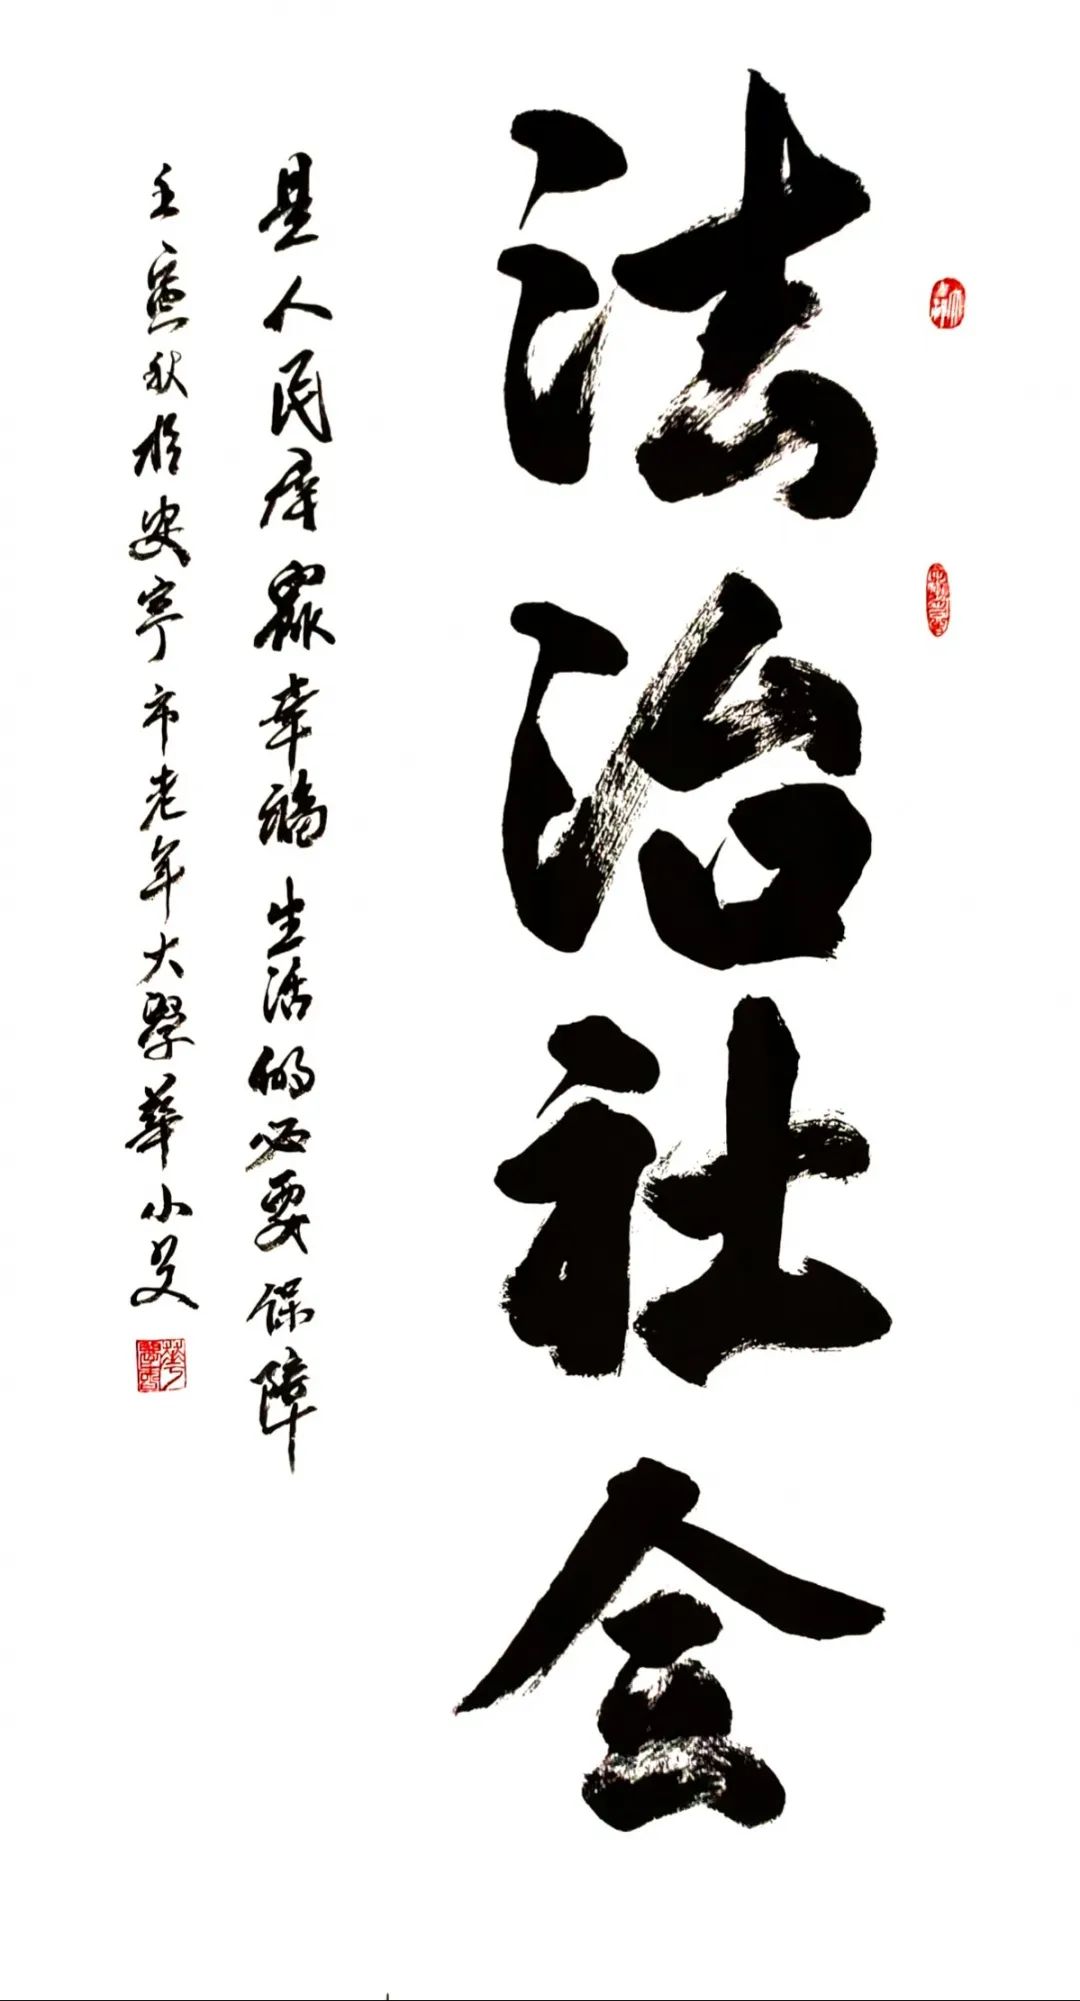 法治社会
是人民群眾幸福生活的必要保障
壬寅秋於安寧市老年大學華小